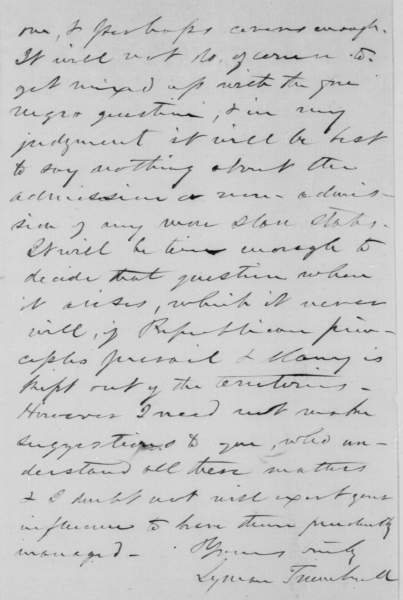 one, & perhaps covers enough.
It will not do, of course to
get mixed up with the free
negro question, & in my
judgment it will be best
to say nothing about the
admission or non-admis-
sion of any more slave states.
It will be time enough to
decide that question when
it arises, which it never
will, if Republican prin-
ciples prevail & slavery is
kept out of the territories -
However I need not make
suggestions to you, who un-
derstand all these matters
& I doubt not will exert your
influence to have them prudently
managed -   Yours truly
Lyman Trumbull